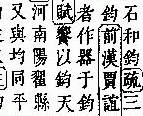 石和鈞疏三
鈞前漢賈誼
者作器于鈞
賦饗以鈞天
河南陽翟縣
又與均同平